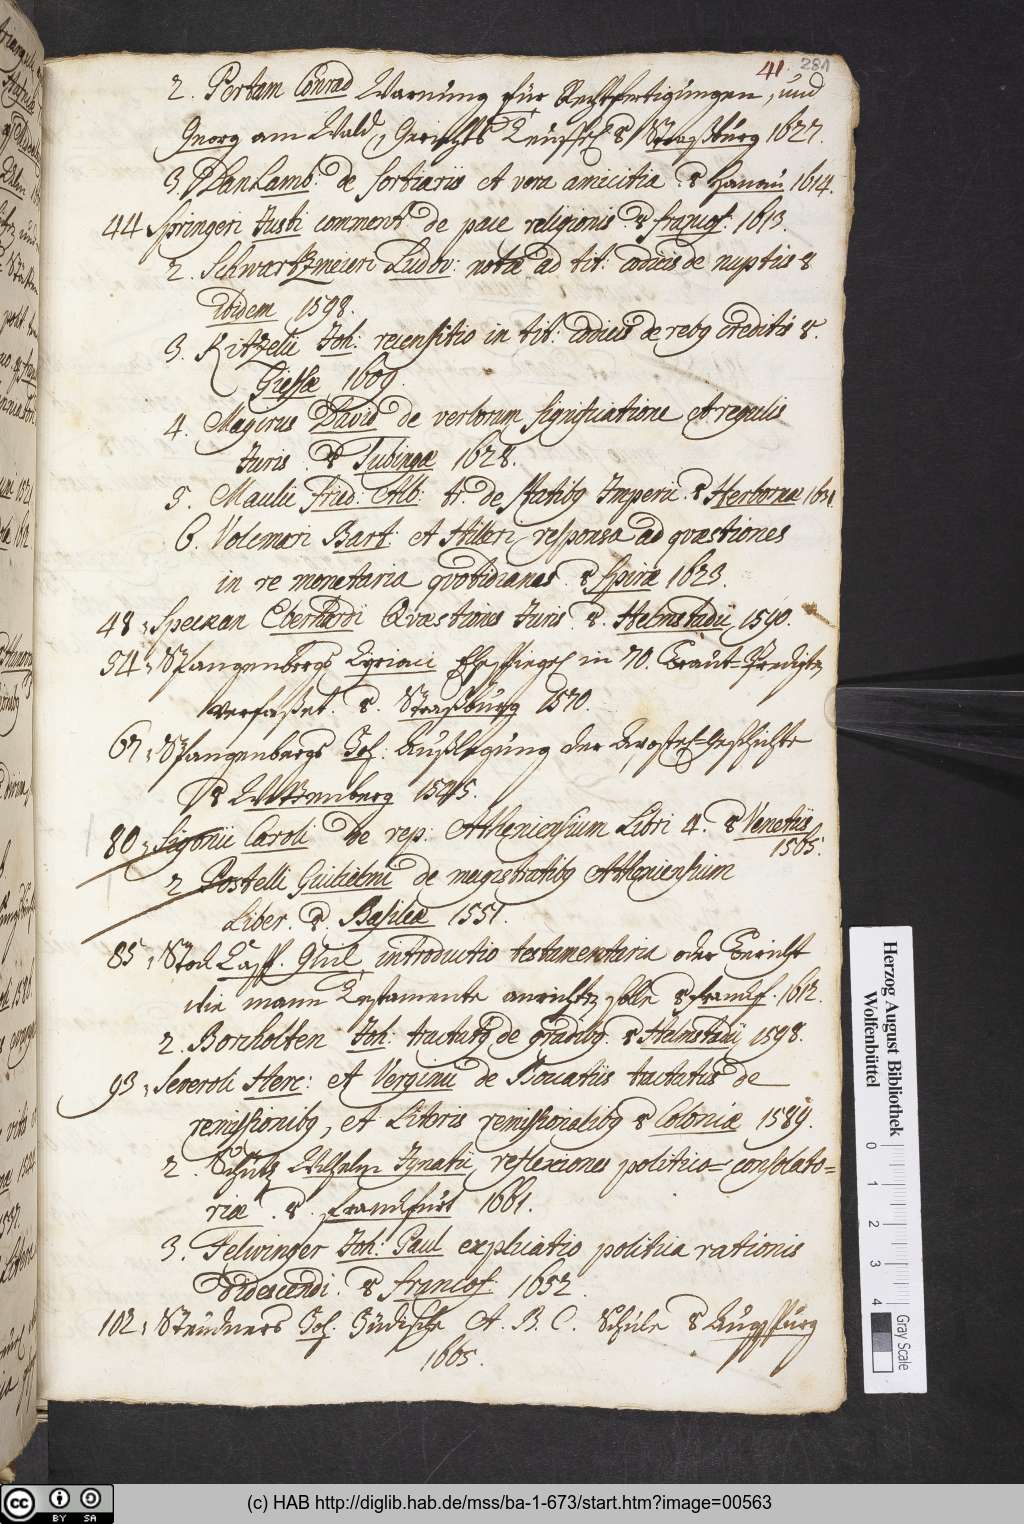 41. 281
2. Pertam Conrad Warnung für Rechtfertigungen, und
Georg am Wald, Gerichts 8 Straßburg 1622.
3. DanLamb: de sortiariis et vera amicitia. 8 Hanau 1614.
44 Springeri Justi comment: de pace religionis. 8 francof. 1613.
2. Schwartzmeieri Ludov: notæ ad tit: codicis de nuptiis 8
ibidem 1598.
3. Kitzelii Joh: recensitio in tit: codicis de rebg creditis 8.
Giessæ 1609.
4. Magirus David de verborum significatione et regulis
Juris. 8 Tubingæ 1628.
5. Maulii frid: Alb: tr: de statibg Imperii. 8 Herbornæ
6. Volcmari Bart: et Hilleri responsa ad quæstiones
in re monetaria quotidianas. 8 Spiræ 1623.
48, Speckan Eberhardi Quæstiones Juris. 8. Helmstadii, 1590.
54, Spangenbergs Cyriaci Ehespiegel in 70. Braut-Predigten
verfaßet. 8. Straßburg 1570.
67, Spangenbergs Joh: Außlegung der Apostel-Geschichte
8 Wittemberg 1545.
80, Sigonii Caroli de rep: Atheniensium Libri 4. 8 Venetiis
1565.
2 Postelli Guilielmi de magistratibg Atheniensium
Liber. 8. Basileæ 1551.
85, Stock Casp. Guil, introductio testamentaria oder Bericht
wie mann Testamente anrichten solle 8 franckf. 1612.
2. Borcholten Joh: tractatg de gradibg. 8 Helmstadii 1598.
93, Severoli Herc: et Verginii de Boccatiis tractatus de
remissionibg, et Literis remissionalibg 8 Coloniæ 1589.
2. Schütz Wilhelm Ignatii, reflexiones politico-consolato-
riæ. 8. franckfurt 1661.
3. Felwinger Joh: Paul explicatio politica rationis
Videscendi. 8 francof. 1652.
102, Steudners Joh. Jüdische A. B. C. Schule 8 Augspurg
1665.
Herzog August Bibliothek
Wolfenbüttel
0 1 2 3 4
Gray Scale
cc BY SA
(c) HAB http://diglib.hab.de/mss/ba-1-673/start.htm?image=00563